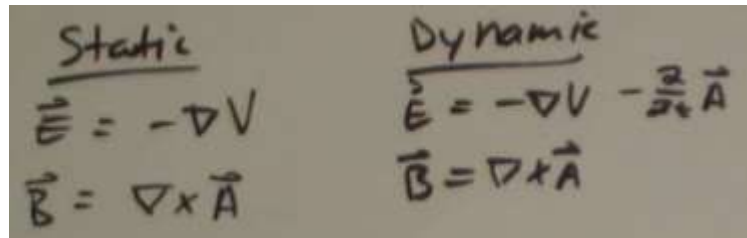 Static
E⃗ = -∇V
B⃗ = ∇×A⃗
Dynamic
E⃗ = -∇V - ∂/∂t A⃗
B⃗ = ∇×A⃗